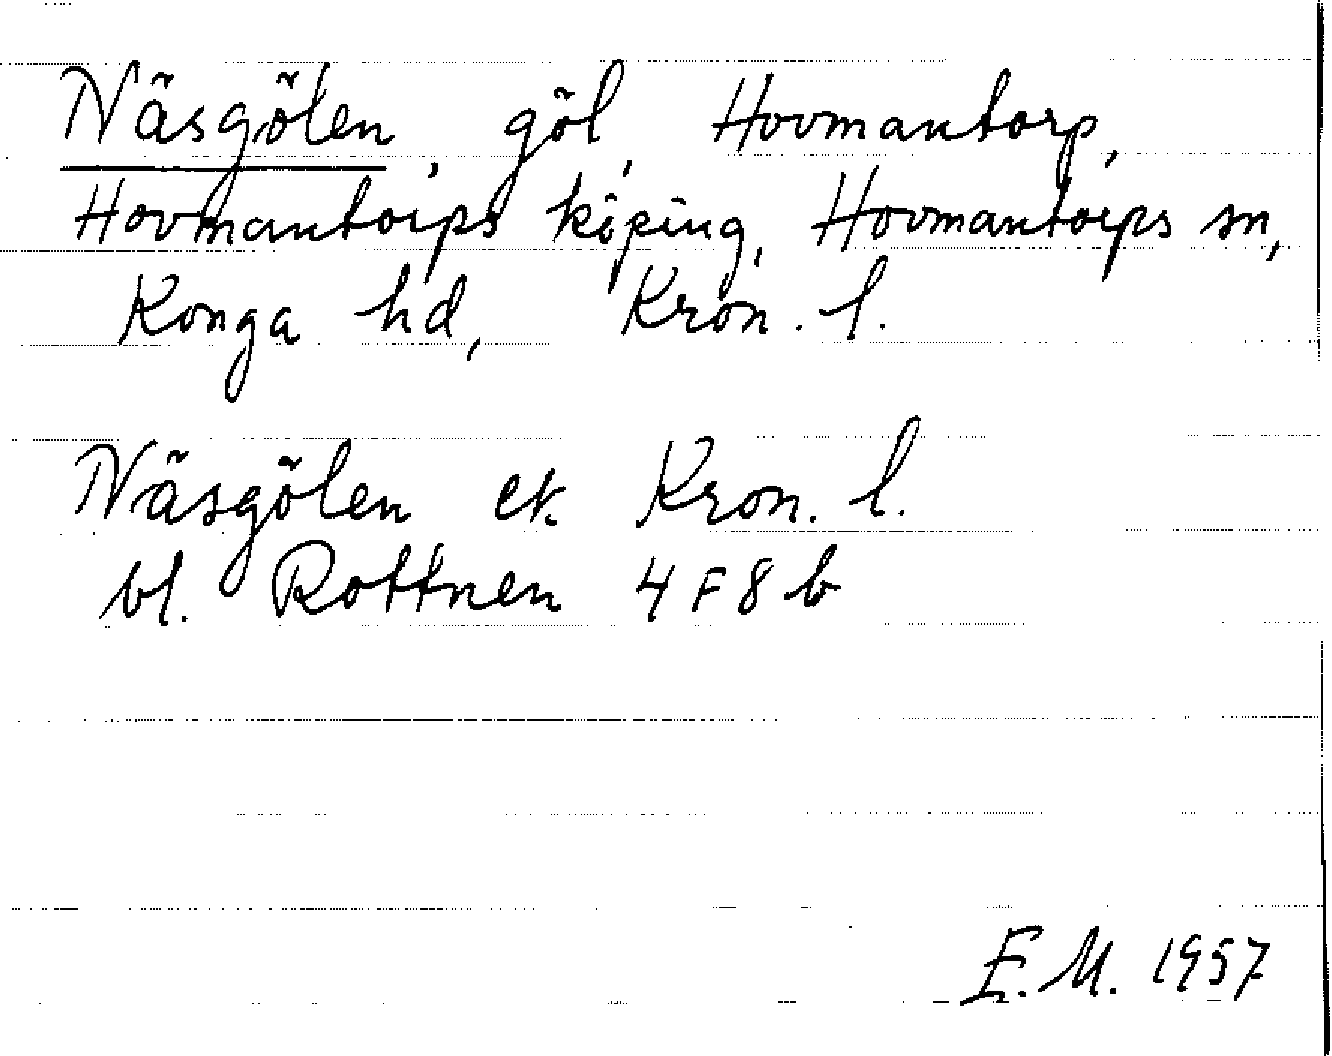 Näsgölen, göl, Hovmantorp,
Hovmantorps köping, Hovmantorps sn,
Konga hd, Kron. l.
Näsgölen ek. Kron. l.
bl. Rottnen 4 F 8 b
E.M. 1957